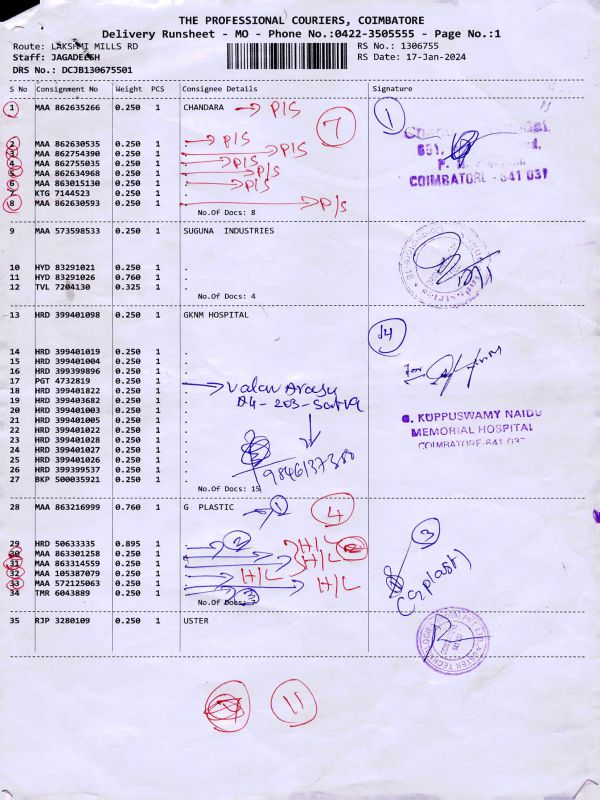 THE PROFESSIONAL COURIERS, COIMBATORE
Delivery Runsheet - MO - Phone No.:0422-3505555 - Page No.:1
Route: LAKSHMI MILLS RD RS No.: 1306755
Staff: JAGADEESH RS Date: 17-Jan-2024
DRS No.: DCJB130675501
S No Consignment No Weight PCS Consignee Details Signature
1 MAA 862635266 0.250 1 CHANDARA P/S
7 1
2 MAA 862630535 0.250 1 . P/S
3 MAA 862754390 0.250 1 . P/S
4 MAA 862755035 0.250 1 . P/S
5 MAA 862634968 0.250 1 . P/S
6 MAA 863015130 0.250 1 . P/S
7 KTG 7144523 0.250 1 .
8 MAA 862630593 0.250 1 . P/S
No.Of Docs: 8
651,
COIMBATORE - 641 037
9 MAA 573598533 0.250 1 SUGUNA INDUSTRIES
10 HYD 83291021 0.250 1 .
11 HYD 83291026 0.760 1 .
12 TVL 7204130 0.325 1 .
No.Of Docs: 4
13 HRD 399401098 0.250 1 GKNM HOSPITAL
14
14 HRD 399401019 0.250 1 .
15 HRD 399401004 0.250 1 .
16 HRD 399399896 0.250 1 .
17 PGT 4732819 0.250 1 . Valan Arasu
18 HRD 399401822 0.250 1 .
19 HRD 399403682 0.250 1 .
20 HRD 399401003 0.250 1 .
21 HRD 399401005 0.250 1 .
22 HRD 399401022 0.250 1 .
23 HRD 399401028 0.250 1 .
24 HRD 399401027 0.250 1 .
25 HRD 399401026 0.250 1 .
26 HRD 399399537 0.250 1 .
27 BKP 500035921 0.250 1 .
No.Of Docs: 15
for
G. KUPPUSWAMY NAIDU
MEMORIAL HOSPITAL
COIMBATORE-641 037
28 MAA 863216999 0.760 1 G PLASTIC 1
4
3
29 HRD 50633335 0.895 1 . 2 H/L
30 MAA 863301258 0.250 1 .
31 MAA 863314559 0.250 1 . H/L
32 MAA 105387079 0.250 1 . H/L
33 MAA 572125063 0.250 1 . H/L
34 TMR 6043889 0.250 1 . 3
No.Of Docs: 7
35 RJP 3280109 0.250 1 USTER
11